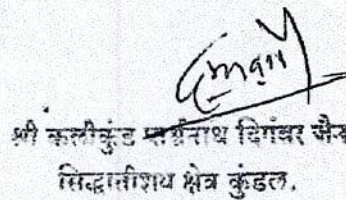 श्री कलीकुंड पार्श्वनाथ दिगंबर जैन
सिद्धातीशय क्षेत्र कुंडल.